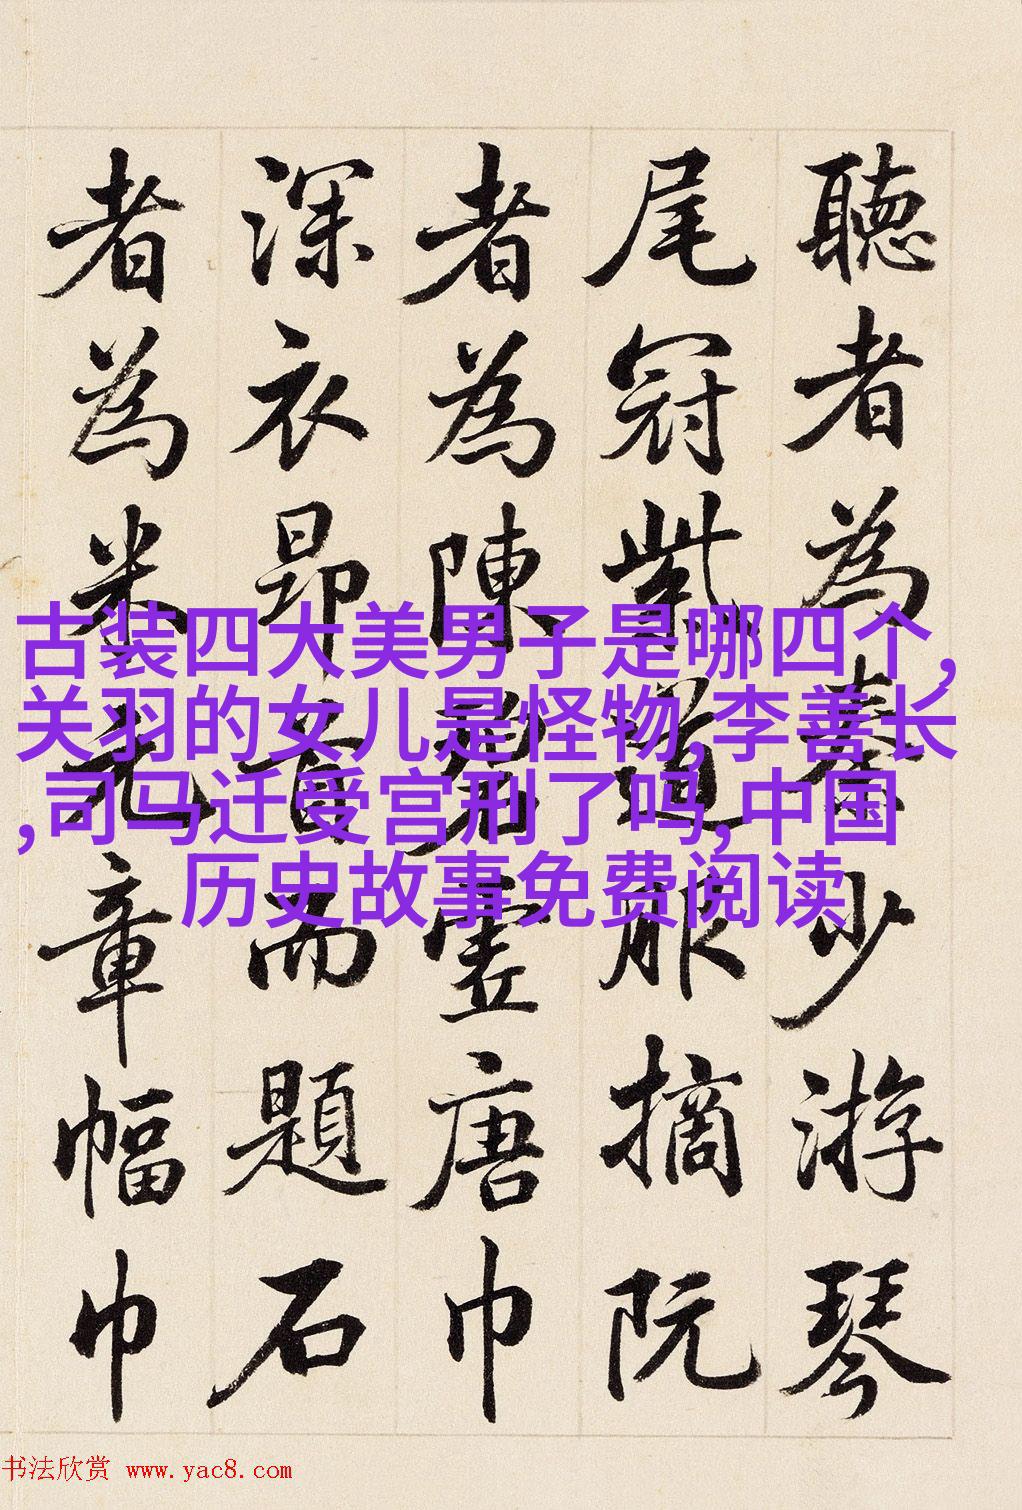 聽者為秦少游琴
尾冠紫道服摘阮
者為陳碧虛唐巾
深衣昂首而題石
者為米元章幅巾
古装四大美男子是哪四个,
关羽的女儿是怪物,李善长
,司马迁受宫刑了吗,中国
历史故事免费阅读
书法欣赏 www.yac8.com